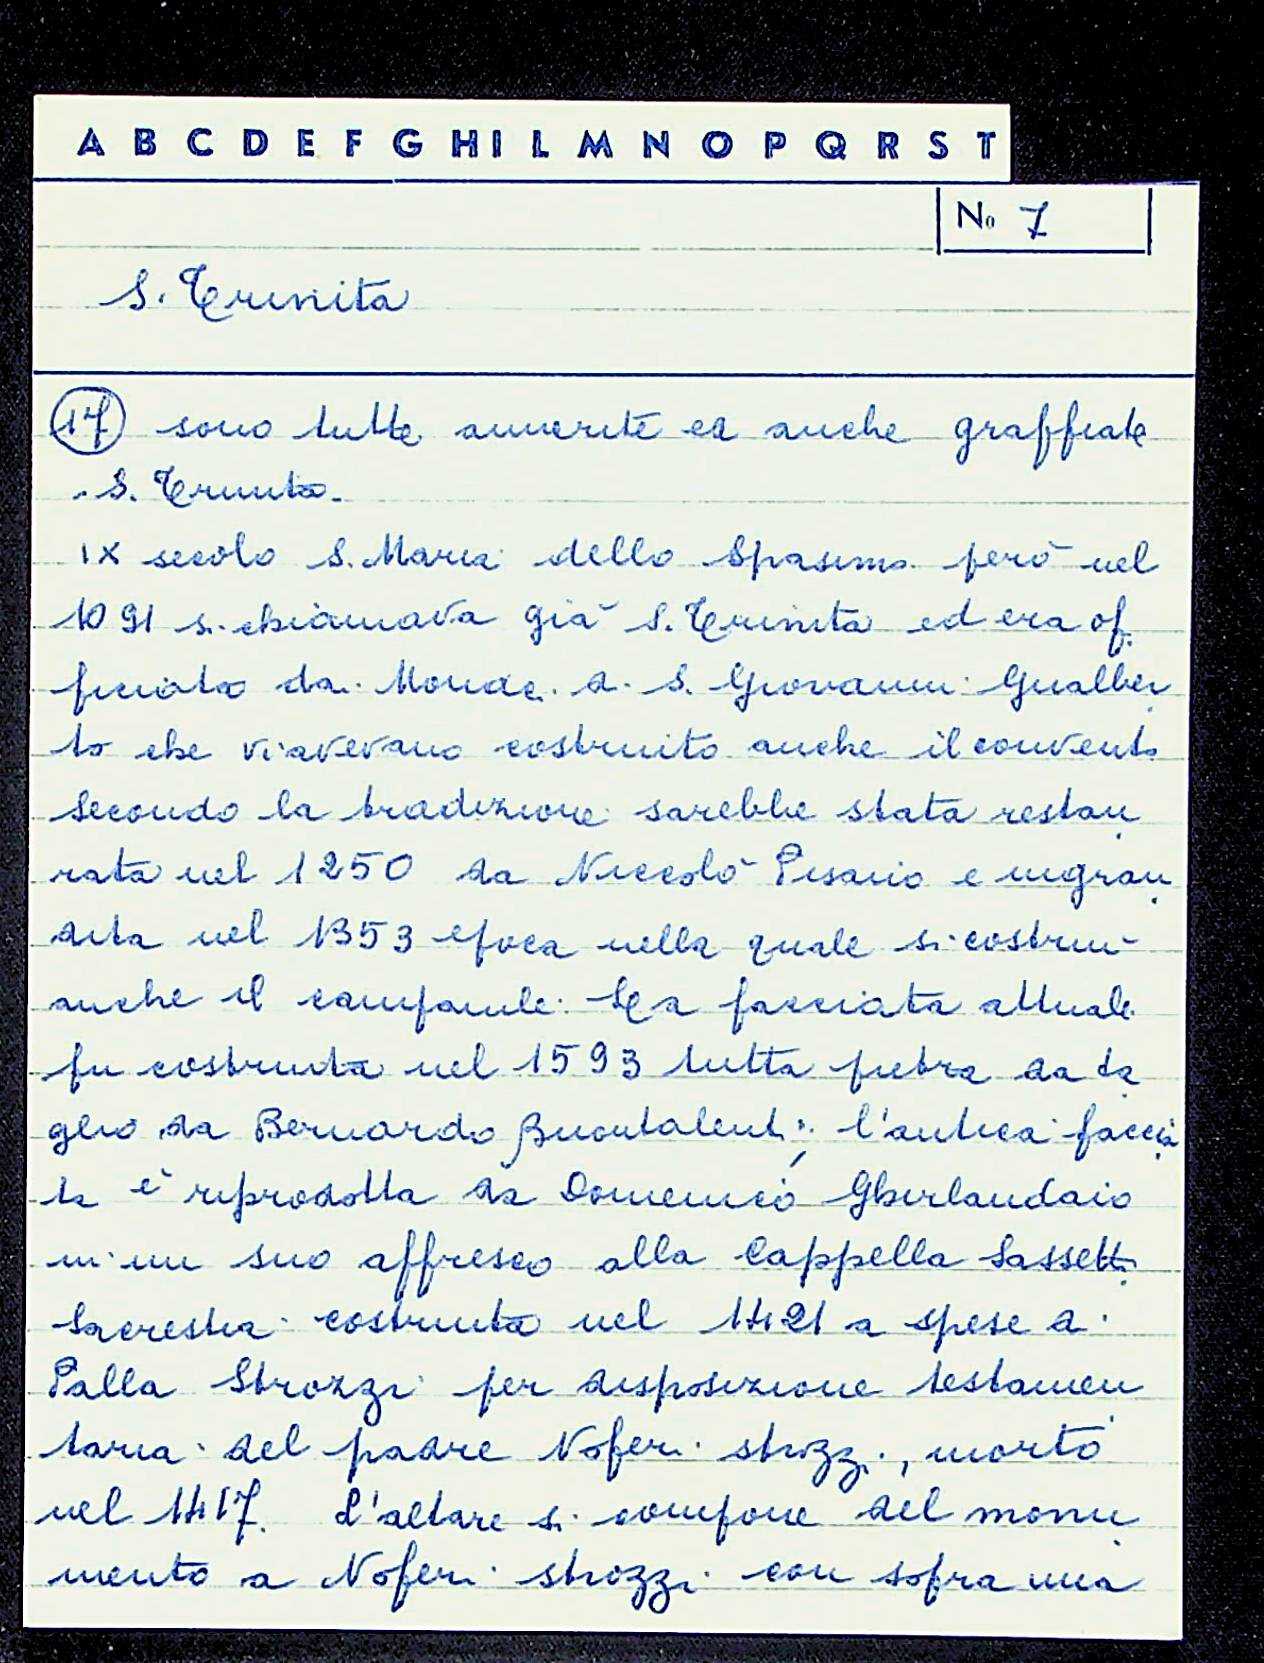 A B C D E F G H I L M N O P Q R S T
No 7
S. Trinita
17 sono tutte annerite ed anche graffiate
S. Trinita.
IX secolo S. Maria dello Spasimo però nel
1091 si chiamava già S. Trinita ed era of
ficiata da Monac. di S. Giovanni Gualber
to che vi avevano costruito anche il convento
Secondo la tradizione sarebbe stata restau
rata nel 1250 da Niccolò Pisano e ingran
dita nel 1353 epoca nella quale si costrui
anche il campanile. La facciata attuale
fu costruita nel 1593 tutta pietra da ta
glio da Bernardo Buontalenti; l'antica faccia
ta è riprodotta da Domenico Ghirlandaio
in un suo affresco alla Cappella Sassetti
Sacrestia costruita nel 1421 a spese di
Palla Strozzi per disposizione testamen
taria del padre Noferi Strozzi, morto
nel 1417. L'altare si compone del monu
mento a Noferi Strozzi con sopra una